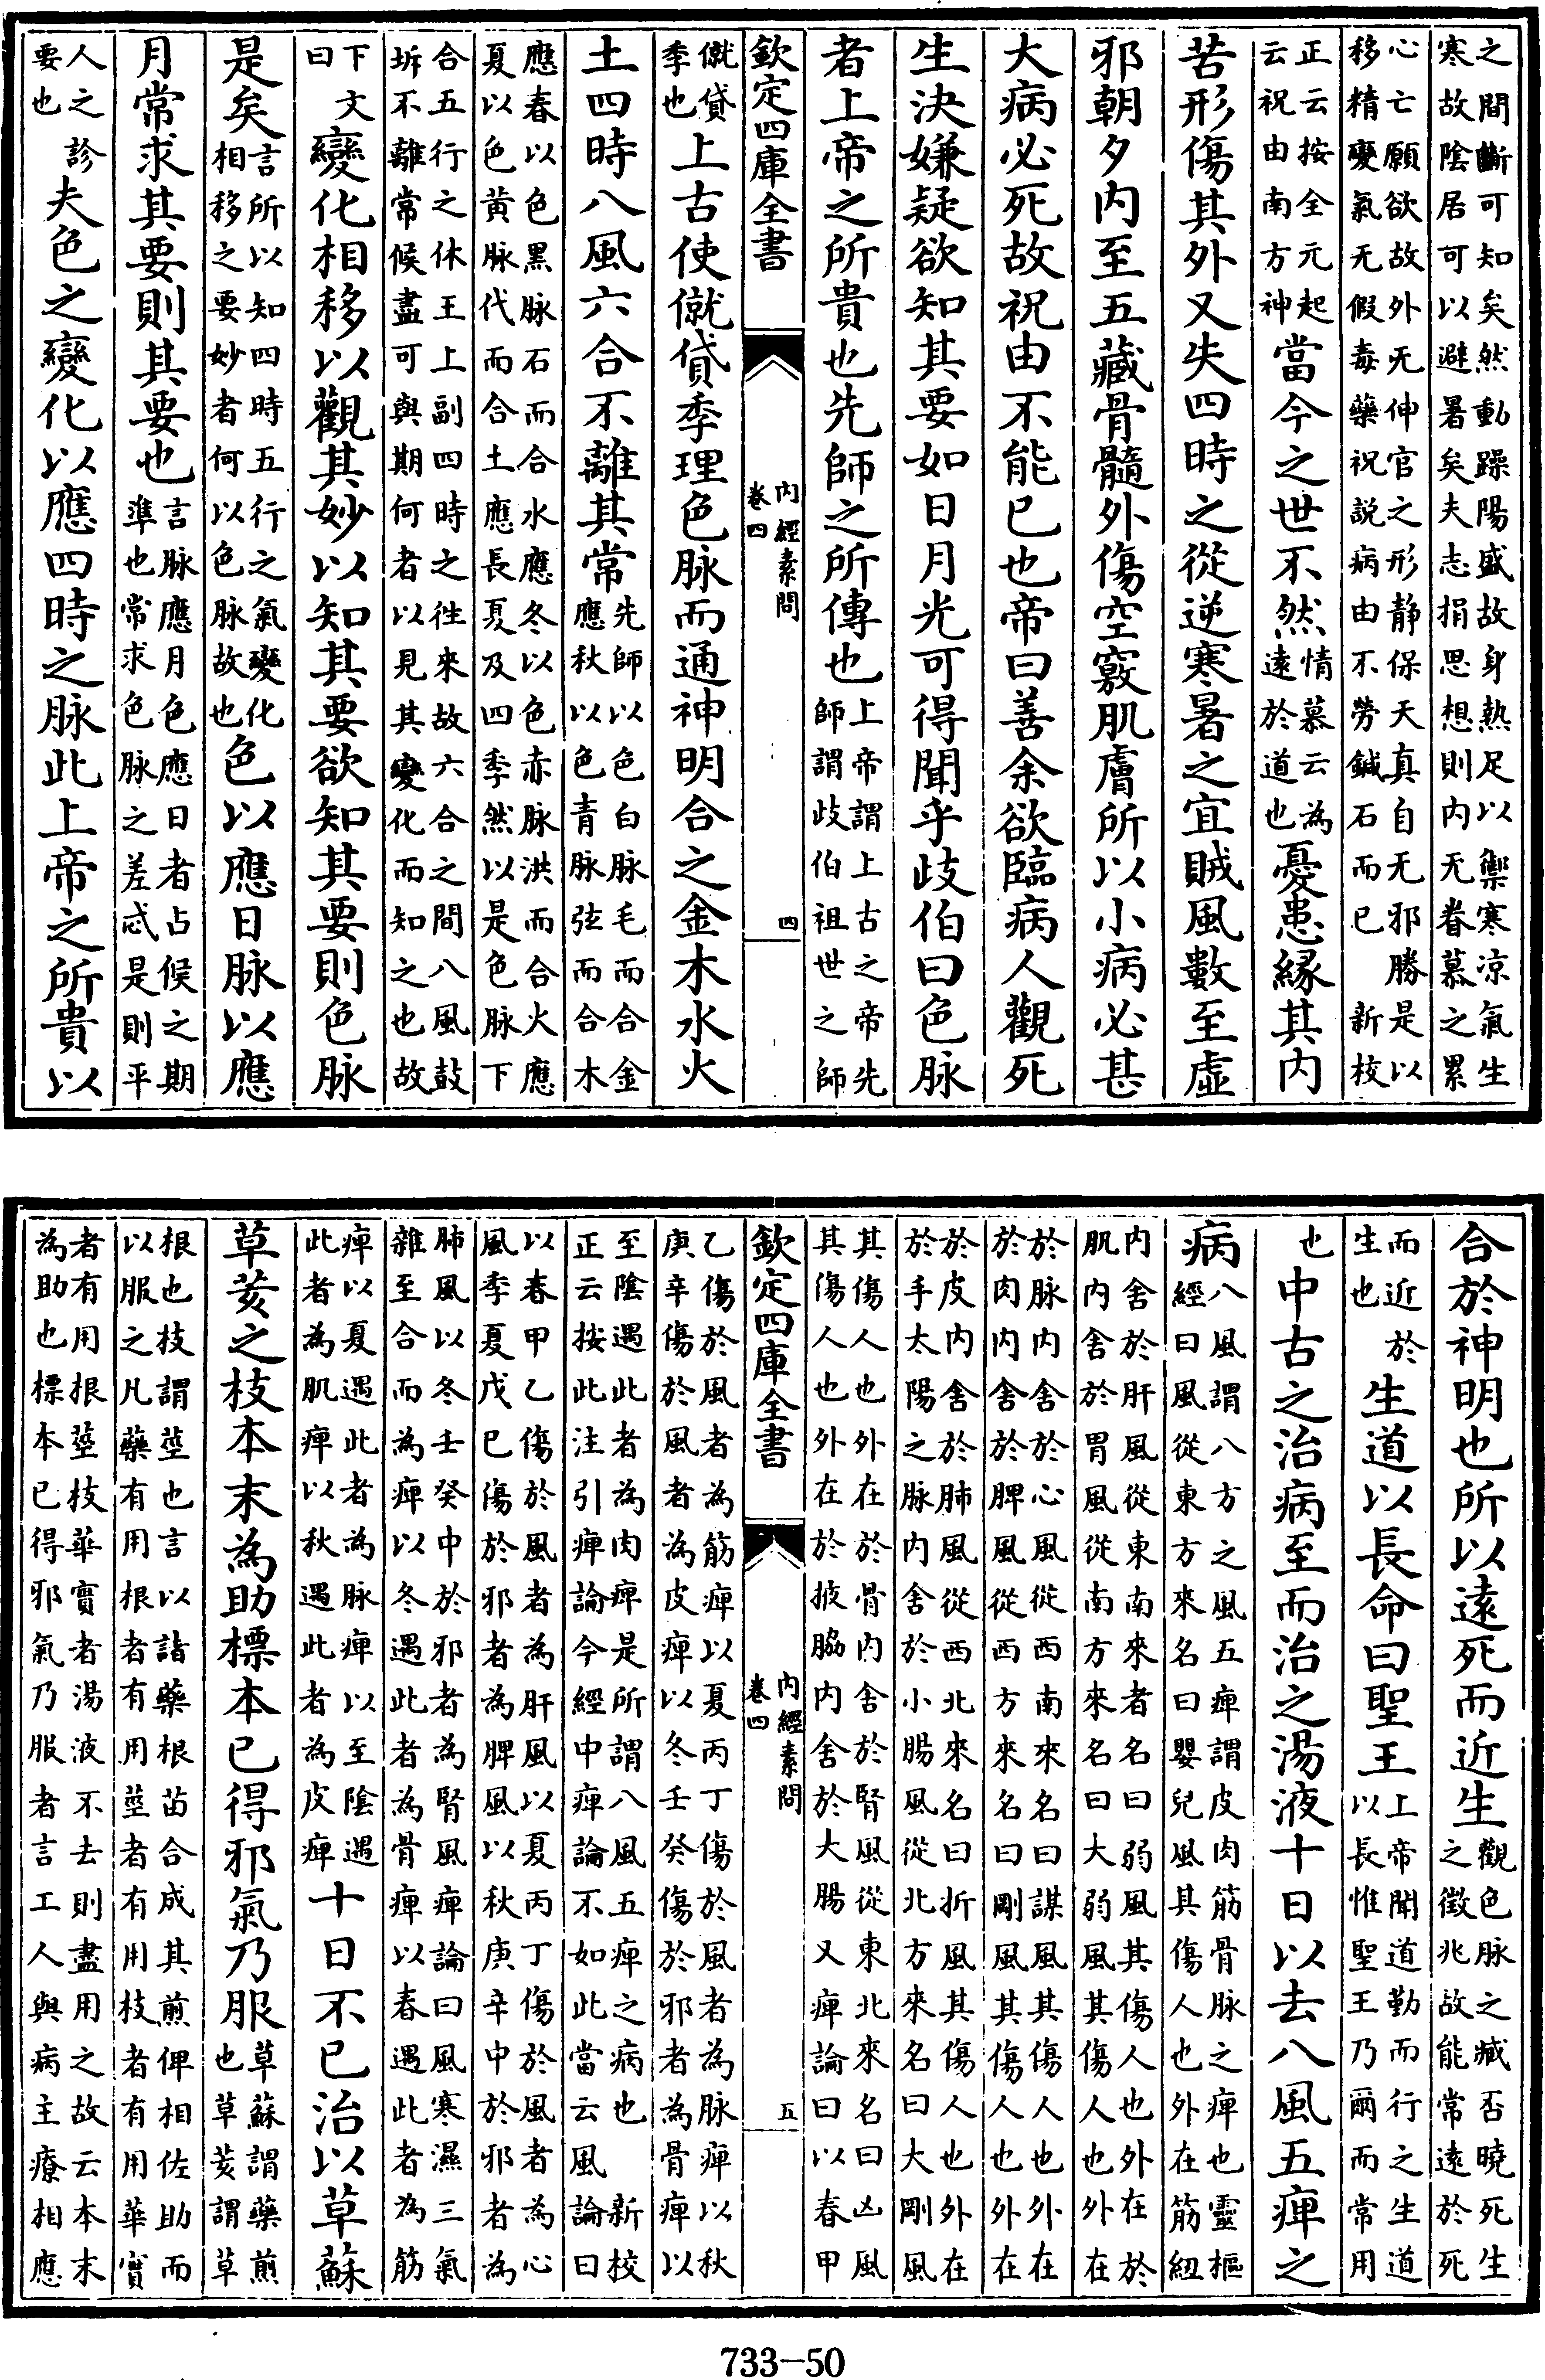 之間斷可知矣然動躁陽盛故身熱足以禦寒凉氣生
寒故陰居可以避暑矣夫志捐思想則内无眷慕之累
心亡願欲故外无伸官之形静保天真自无邪勝是以
移精變氣无假毒藥祝説病由不勞鍼石而已新校
正云按全元起
云祝由南方神當今之世不然情慕云為
逺於道也憂患縁其内
苦形傷其外又失四時之從逆寒暑之宜賊風數至虚
邪朝夕内至五藏骨髓外傷空竅肌膚所以小病必甚
大病必死故祝由不能已也帝曰善余欲臨病人觀死
生決嫌疑欲知其要如日月光可得聞乎歧伯曰色脉
者上帝之所貴也先師之所傳也上帝謂上古之帝先
師謂歧伯祖世之師
欽定四庫全書
内經素問
卷四
四
僦貸
季也上古使僦貸季理色脉而通神明合之金木水火
土四時八風六合不離其常先師以色白脉毛而合金
應秋以色青脉弦而合木
應春以色黑脉石而合水應冬以色赤脉洪而合火應
夏以色黄脉代而合土應長夏及四季然以是色脉下
合五行之休王上副四時之徃來故六合之間八風鼓
坼不離常候盡可與期何者以見其變化而知之也故
下文
曰變化相移以觀其妙以知其要欲知其要則色脉
是矣言所以知四時五行之氣變化
相移之要妙者何以色脉故也色以應日脉以應
月常求其要則其要也言脉應月色應日者占候之期
準也常求色脉之差忒是則平
人之診
要也夫色之變化以應四時之脉此上帝之所貴以
合於神明也所以逺死而近生觀色脉之臧否曉死生
之徵兆故能常逺於死
而近於
生也生道以長命曰聖王上帝聞道勤而行之生道
以長惟聖王乃爾而常用
也中古之治病至而治之湯液十日以去八風五痺之
病八風謂八方之風五痺謂皮肉筋骨脉之痺也靈樞
經曰風從東方來名曰嬰兒風其傷人也外在筋紐
内舍於肝風從東南來者名曰弱風其傷人也外在於
肌内舍於胃風從南方來名曰大弱風其傷人也外在
於脉内舍於心風從西南來名曰謀風其傷人也外在
於肉内舍於脾風從西方來名曰剛風其傷人也外在
於皮内舍於肺風從西北來名曰折風其傷人也外在
於手太陽之脉内舍於小腸風從北方來名曰大剛風
其傷人也外在於骨内舍於腎風從東北來名曰凶風
其傷人也外在於掖脇内舍於大腸又痺論曰以春甲
欽定四庫全書
内經素問
卷四
五
乙傷於風者為筋痺以夏丙丁傷於風者為脉痺以秋
庚辛傷於風者為皮痺以冬壬癸傷於邪者為骨痺以
至陰遇此者為肉痺是所謂八風五痺之病也新校
正云按此注引痺論今經中痺論不如此當云風論曰
以春甲乙傷於風者為肝風以夏丙丁傷於風者為心
風季夏戊已傷於邪者為脾風以秋庚辛中於邪者為
肺風以冬壬癸中於邪者為腎風痺論曰風寒濕三氣
雜至合而為痺以冬遇此者為骨痺以春遇此者為筋
痺以夏遇此者為脉痺以至陰遇
此者為肌痺以秋遇此者為皮痺十日不已治以草蘇
草荄之枝本末為助標本已得邪氣乃服草蘇謂藥煎
也草荄謂草
根也枝謂莖也言以諸藥根苗合成其煎俾相佐助而
以服之凡藥有用根者有用莖者有用枝者有用華實
者有用根莖枝華實者湯液不去則盡用之故云本末
為助也標本已得邪氣乃服者言工人與病主療相應